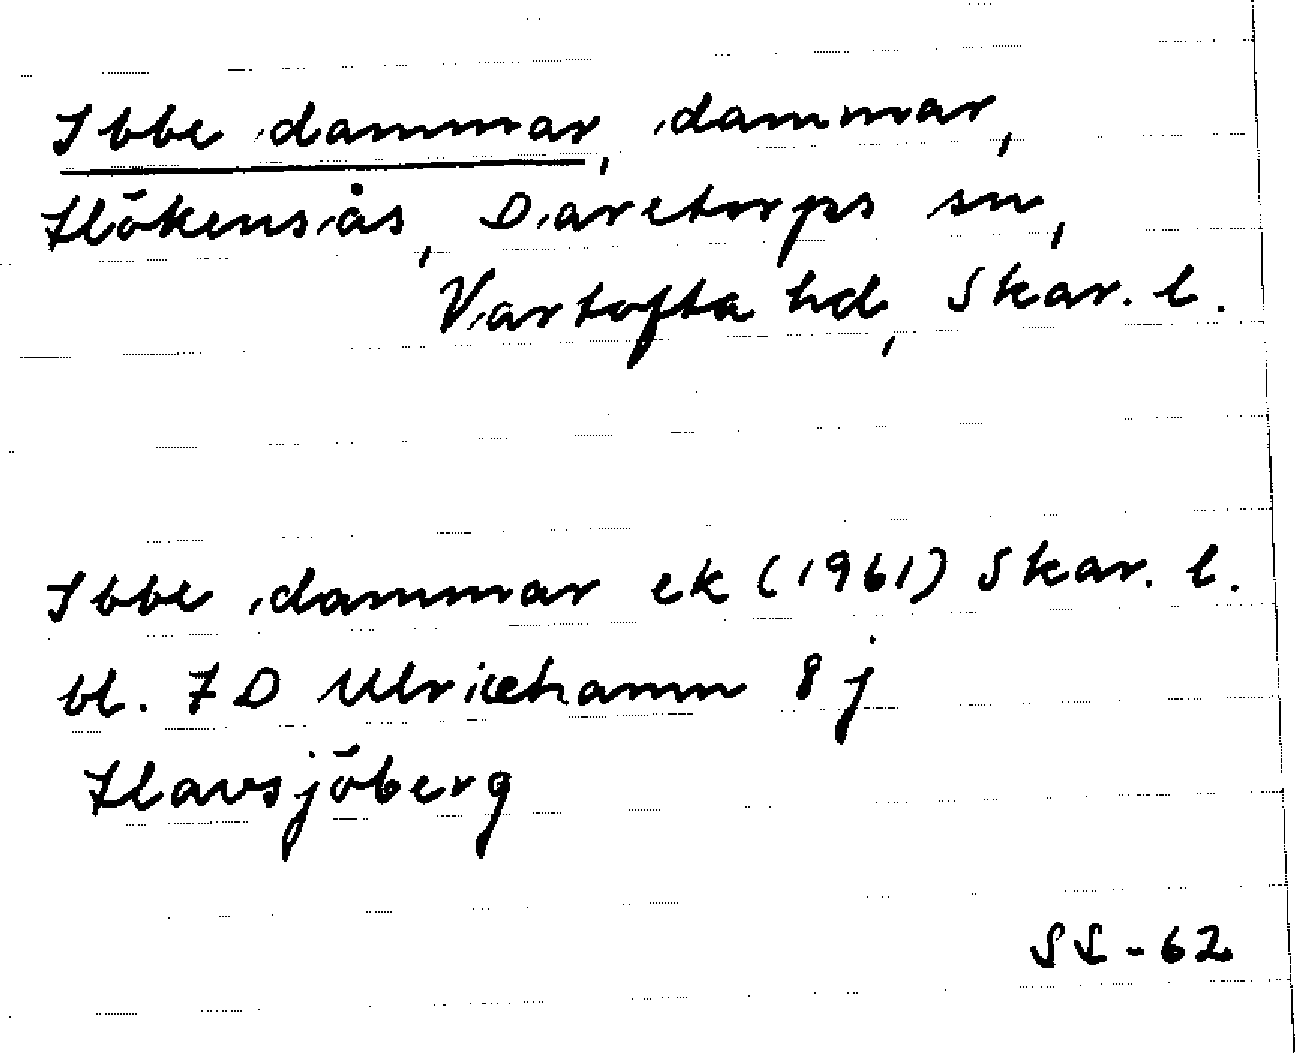 Ibbe dammar, dammar,
Hökensås, Daretorps sn,
Vartofta hd, Skar. l.
Ibbe dammar ek (1961) Skar. l.
bl. 7 D Ulricehamn 8 j
Havsjöberg
SS-62